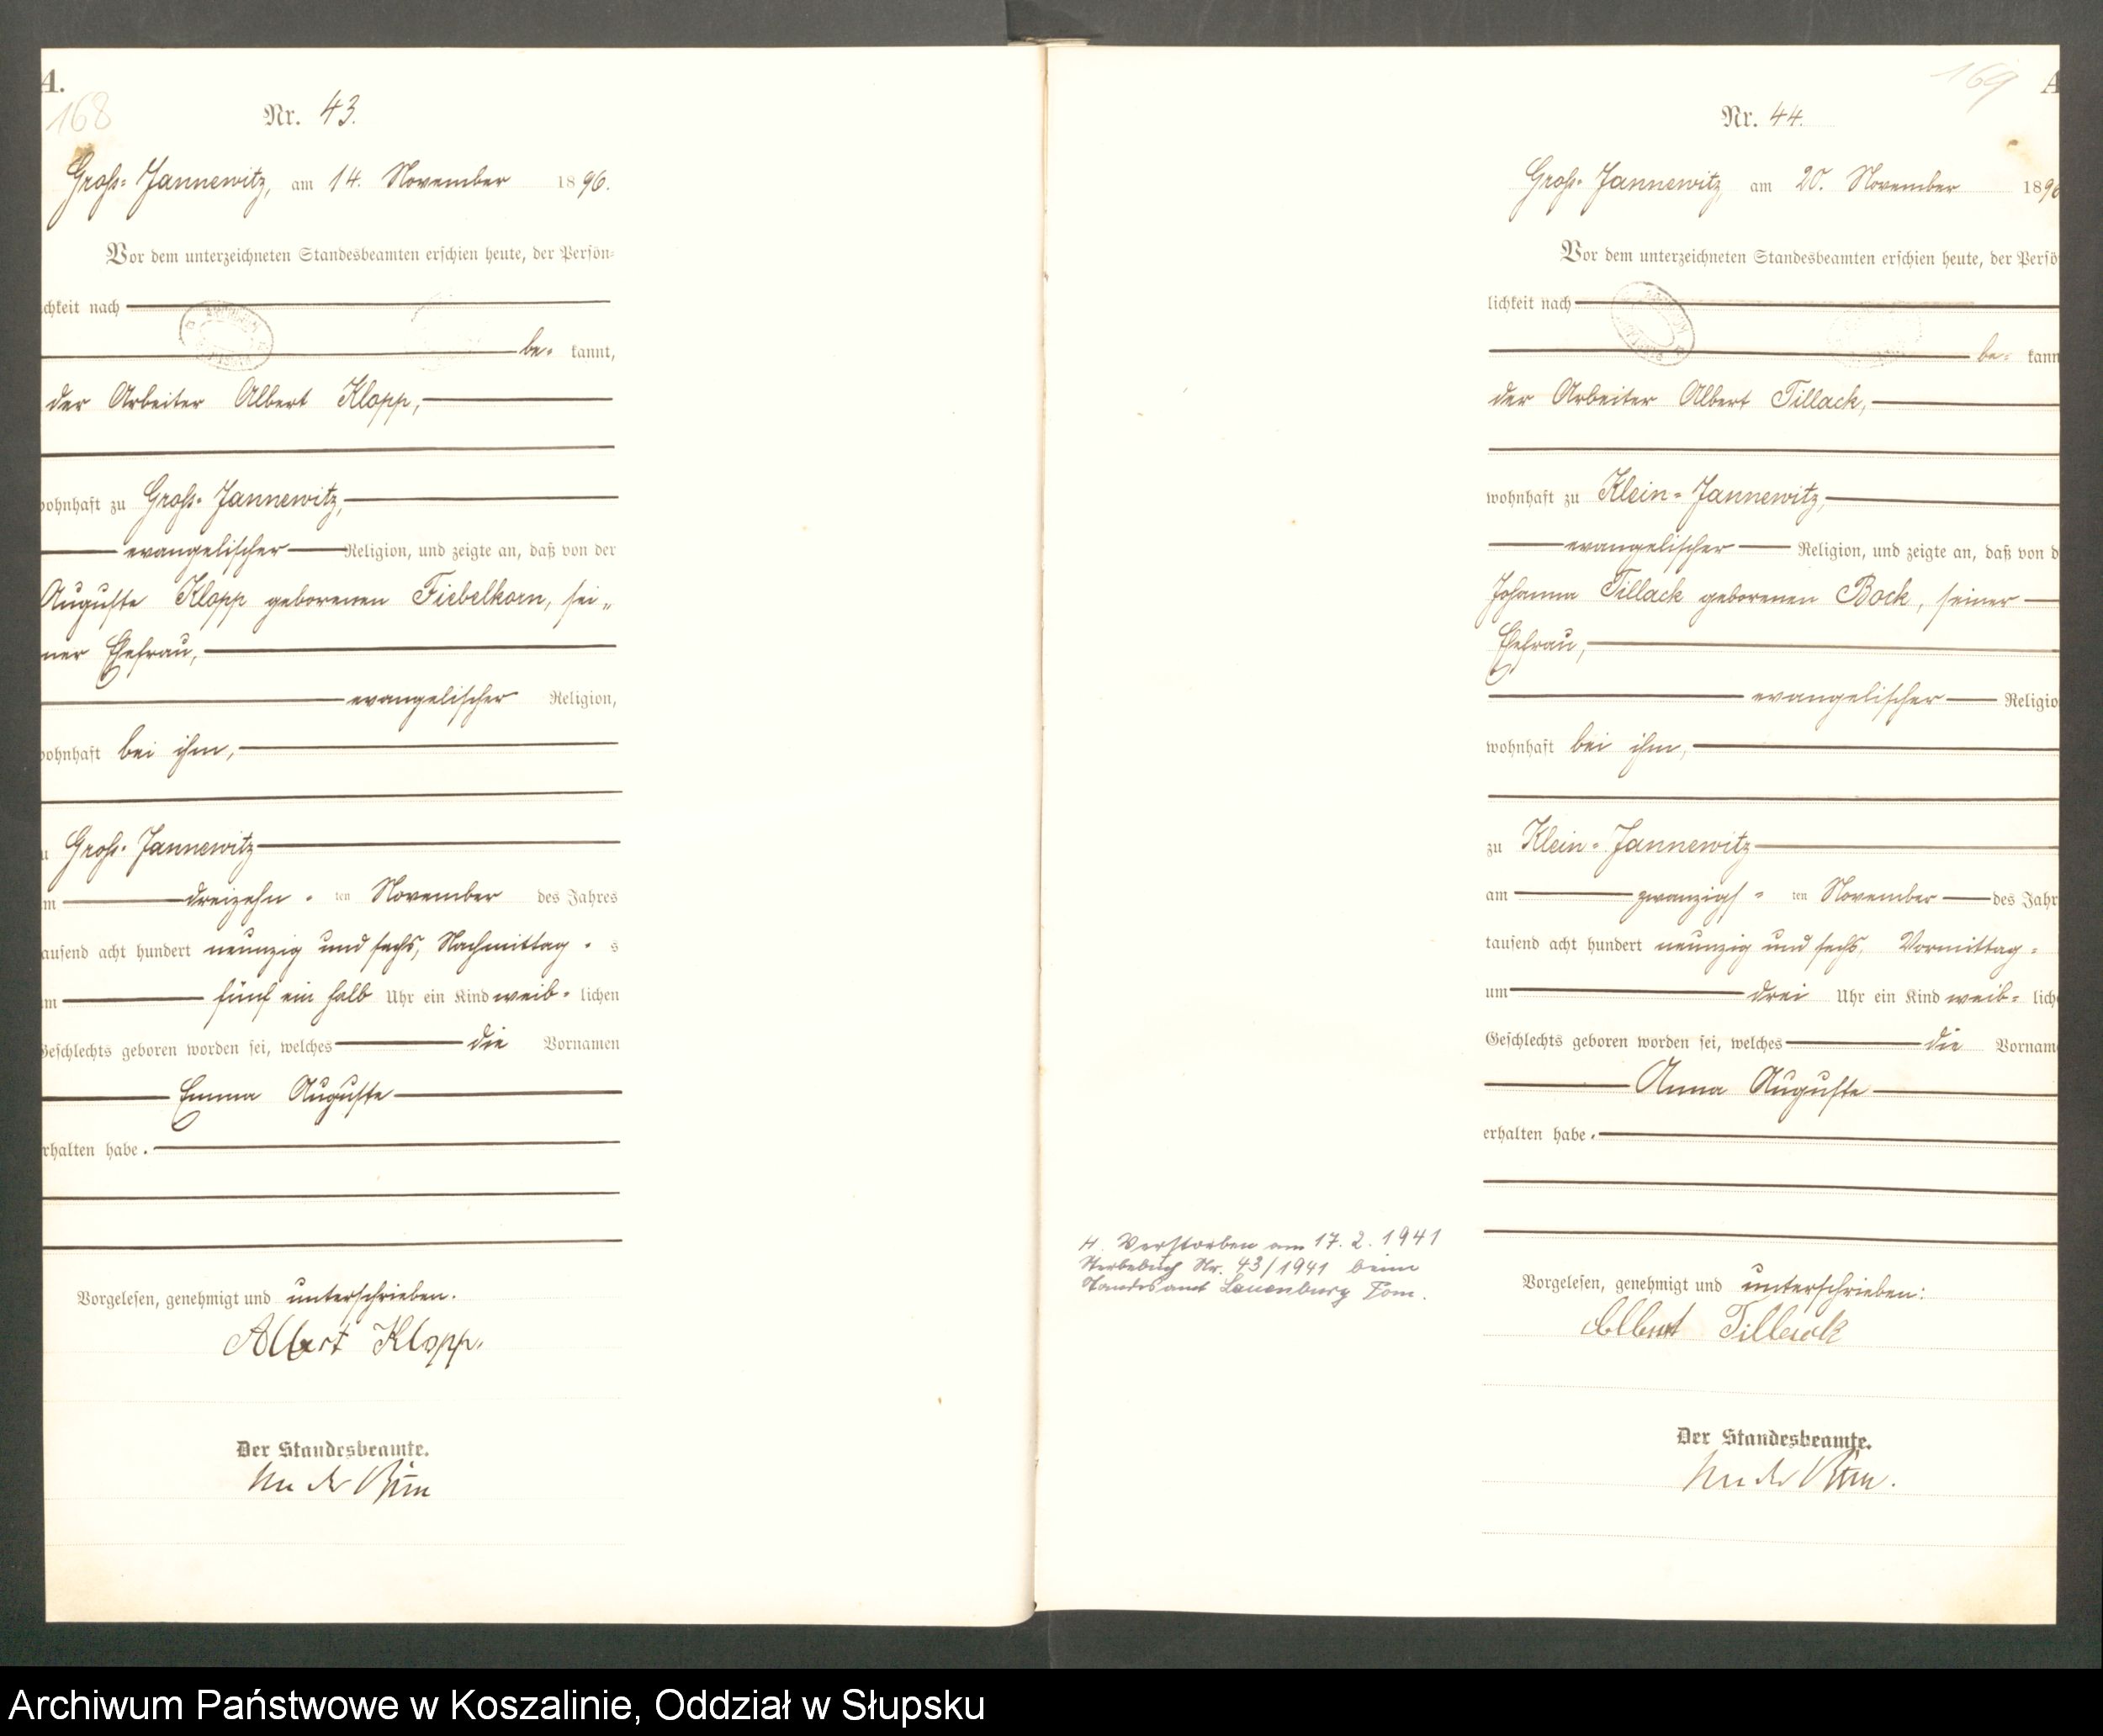 A.
168
Nr. 43.
Groß-Jannewitz, am 14. November 1896.
Vor dem unterzeichneten Standesbeamten erschien heute, der Persön-
chkeit nach
be- kannt,
der Arbeiter Albert Klopp,
wohnhaft zu Groß-Jannewitz,
evangelischer Religion, und zeigte an, daß von der
Auguste Klopp geborenen Fiebelkorn, sei-
ner Ehefrau,
evangelischer Religion,
wohnhaft bei ihm,
u Groß-Jannewitz
m dreizehn-ten November des Jahres
tausend acht hundert neunzig und sechs, Nachmittag-s
um fünf ein halb Uhr ein Kind weib-lichen
Geschlechts geboren worden sei, welches die Vornamen
Emma Auguste
erhalten habe.
Vorgelesen, genehmigt und unterschrieben.
Albert Klopp.
Der Standesbeamte.
169
A
Nr. 44.
Groß-Jannewitz, am 20. November 1896
Vor dem unterzeichneten Standesbeamten erschien heute, der Persö
lichkeit nach
be- kann
der Arbeiter Albert Tillack,
wohnhaft zu Klein-Jannewitz,
evangelischer Religion, und zeigte an, daß von d
Johanna Tillack geborenen Bock, seiner
Ehefrau,
evangelischer Religio
wohnhaft bei ihm,
zu Klein-Jannewitz
am zwanzigs-ten November des Jahr
tausend acht hundert neunzig und sechs, Vormittag-
um drei Uhr ein Kind weib-lich
Geschlechts geboren worden sei, welches die Vornam
Anna Auguste
erhalten habe.
H. Verstorben am 17.2.1941
Sterbebuch Nr. 43/1941 beim
Standesamt Lauenburg Pom.
Vorgelesen, genehmigt und unterschrieben:
Albert Tillack
Der Standesbeamte.
Archiwum Państwowe w Koszalinie, Oddział w Słupsku